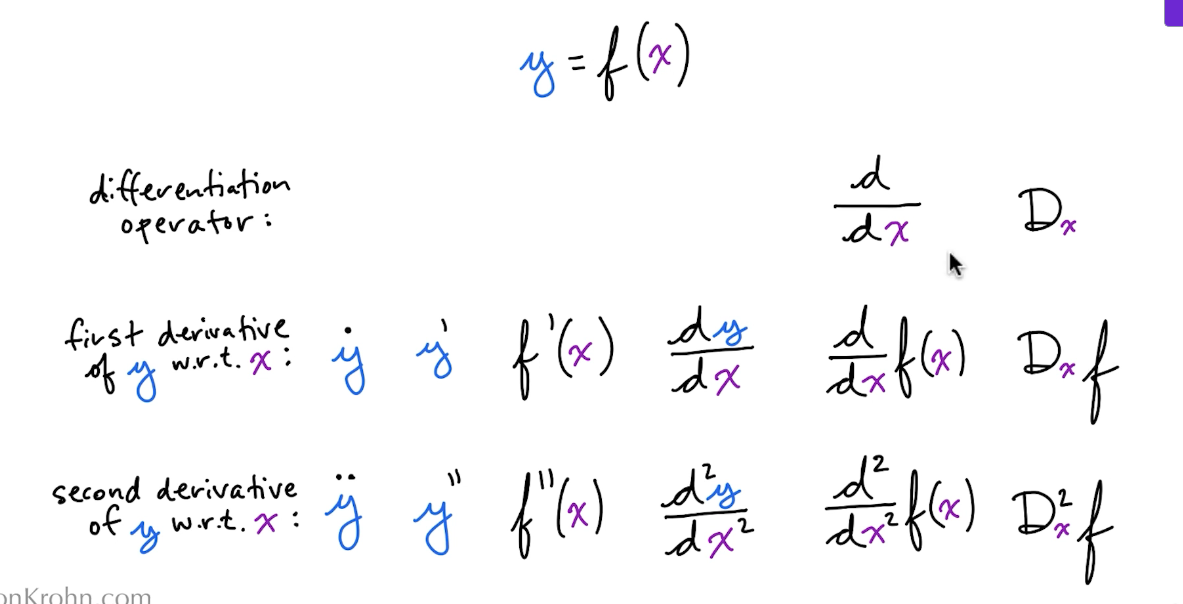 y = f(x)
differentiation
operator: d/dx Dₓ
first derivative
of y w.r.t. x: ẏ y' f'(x) dy/dx d/dx f(x) Dₓf
second derivative
of y w.r.t. x: ÿ y'' f''(x) d²y/dx² d²/dx² f(x) Dₓ²f
onKrohn.com